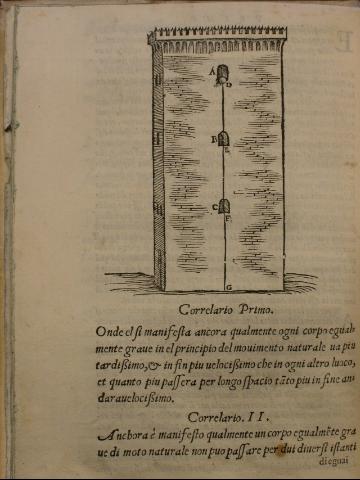 A
D
B
E
C
F
G
Correlario Primo.
Onde el si manifesta ancora qualmente ogni corpo egual
mente graue in el principio del mouimento naturale ua piu
tardissimo, & in fin piu uelocissimo che in ogni altro luoco,
et quanto piu passera per longo spacio tāto piu in fine an
dara uelocissimo.
Correlario. II.
Anchora é manifesto qualmente un corpo egualmēte gra
ue di moto naturale non puo passare per dui diuersi istanti
di egual